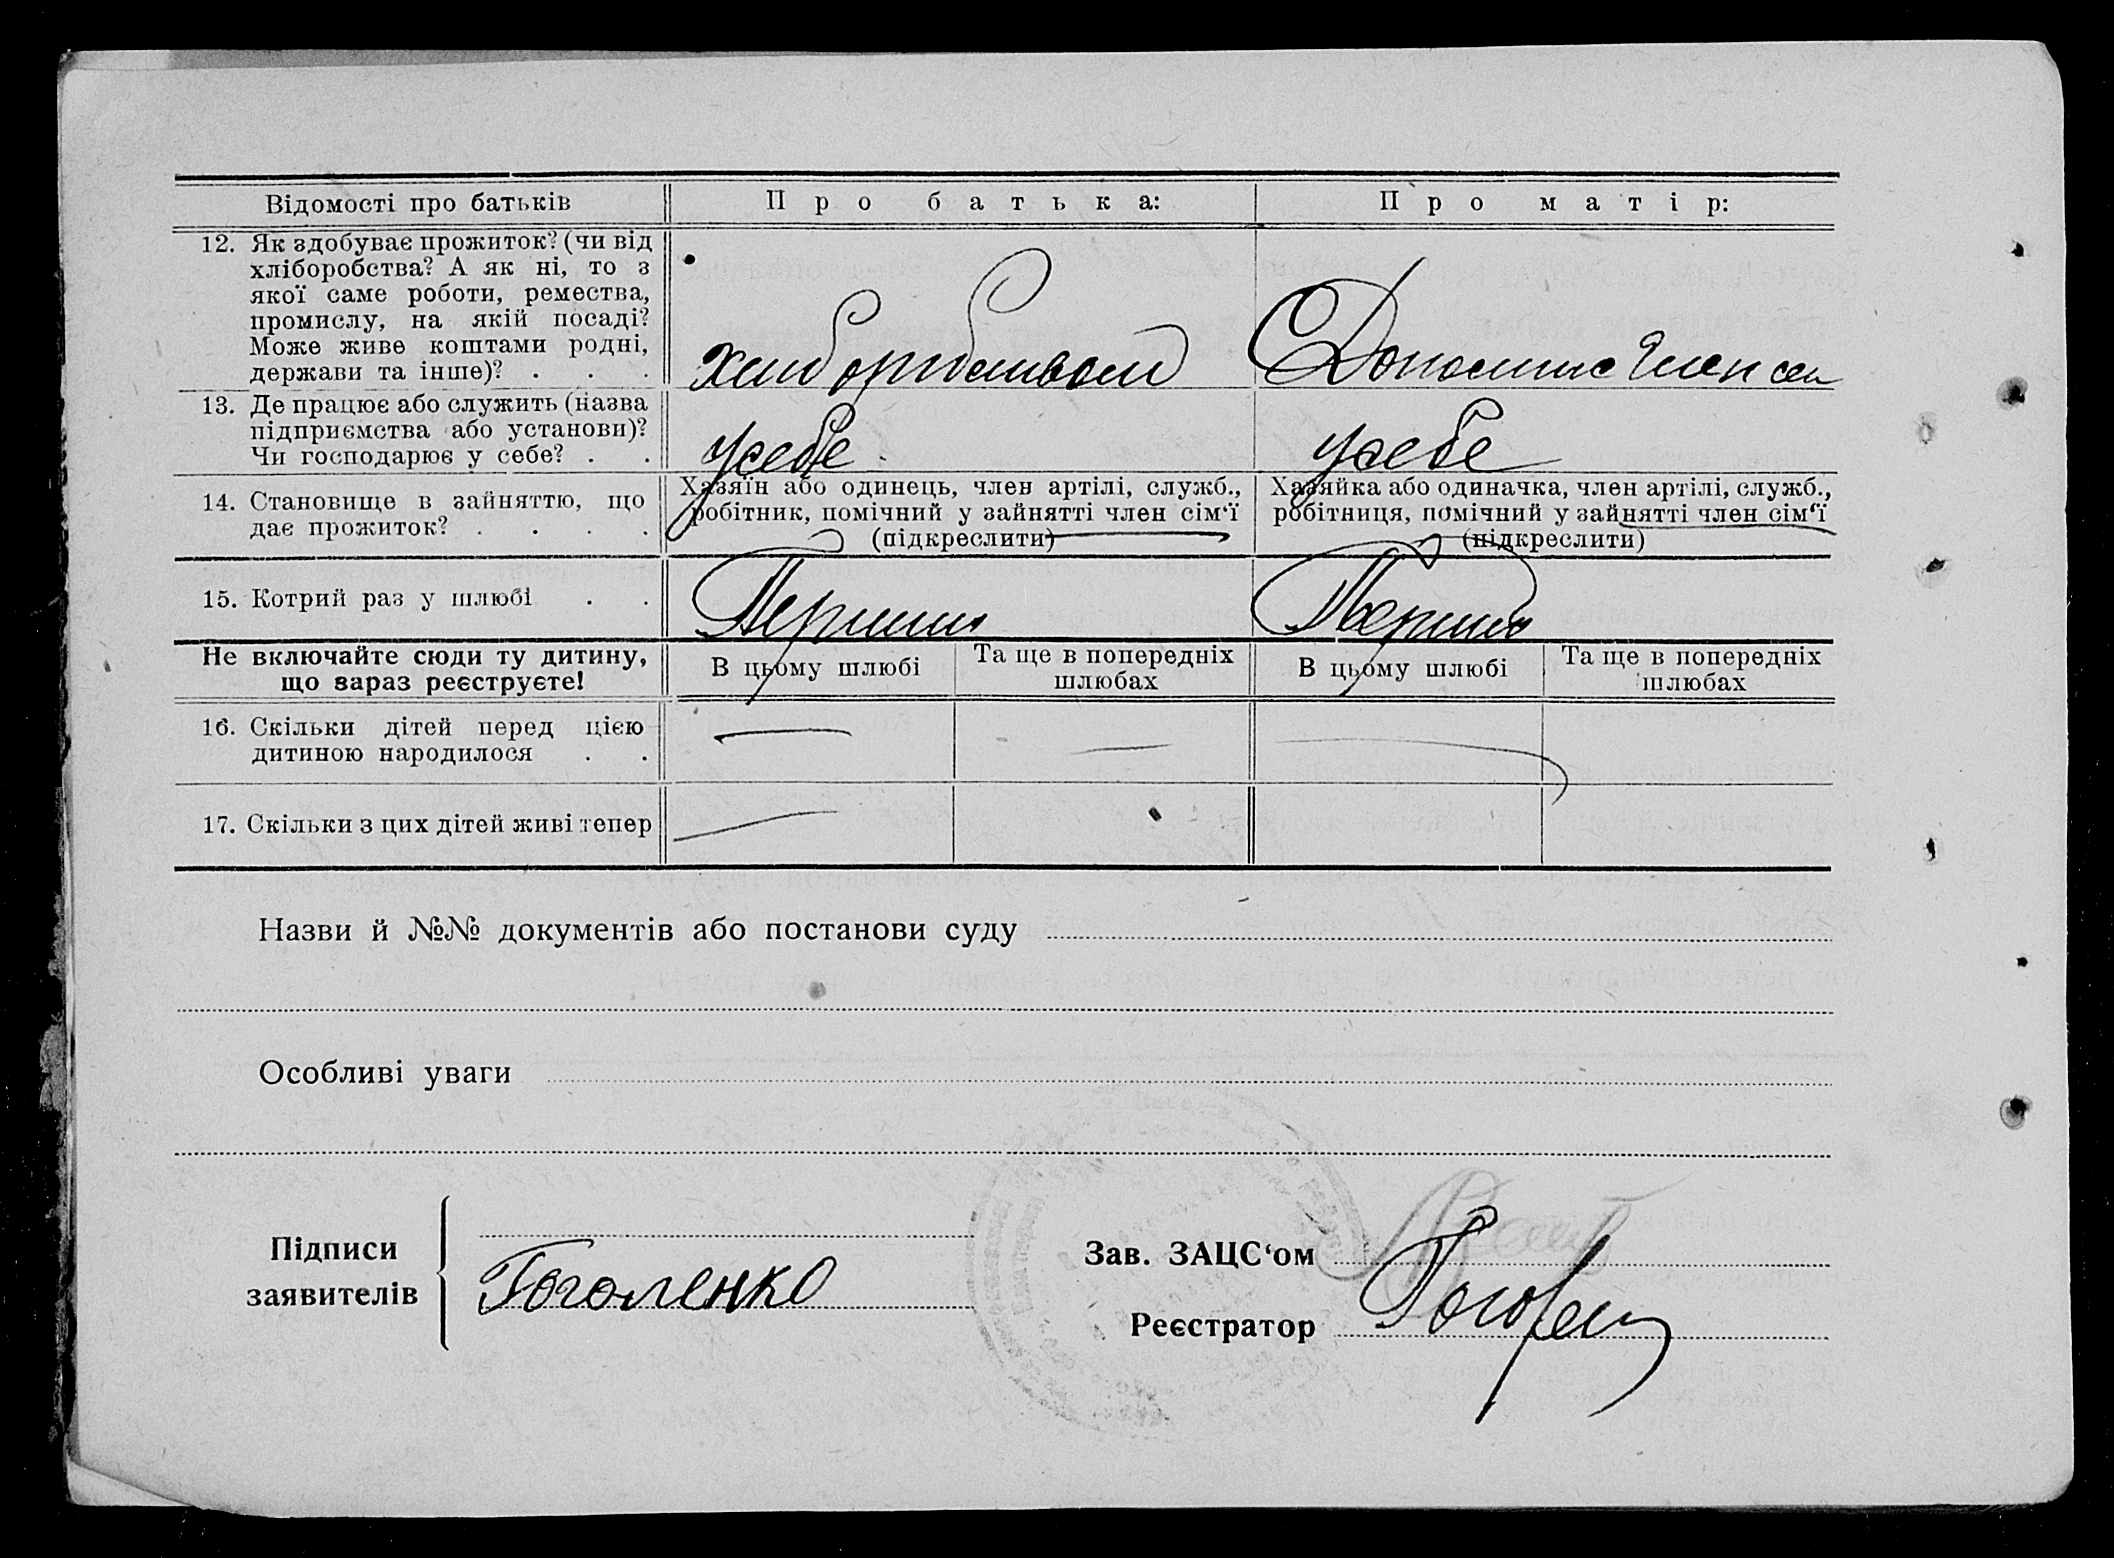 Відомості про батьків
Про батька:
Про матір:
12. Як здобуває прожиток? (чи від
хліборобства? А як ні, то з
якої саме роботи, ремества,
промислу, на якій посаді?
Може живе коштами родні,
держави та інше)? . . .
13. Де працює або служить (назва
підприємства або установи)?
Чи господарює у себе? . .
усебе
усебе
14. Становище в зайняттю, що
дає прожиток? . . . .
Хазяїн або одинець, член артілі, служб.,
робітник, помічний у зайнятті член сім'ї
(підкреслити)
Хазяйка або одиначка, член артілі, служб.,
робітниця, помічний у зайнятті член сім'ї
(підкреслити)
15. Котрий раз у шлюбі . .
Не включайте сюди ту дитину,
що зараз реєструєте!
В цьому шлюбі
Та ще в попередніх
шлюбах
В цьому шлюбі
Та ще в попередніх
шлюбах
16. Скільки дітей перед цією
дитиною народилося . .
17. Скільки з цих дітей живі тепер
Назви й №№ документів або постанови суду
Особливі уваги
Підписи
заявителів
Гоголенко
Зав. ЗАЦС'ом
Реєстратор